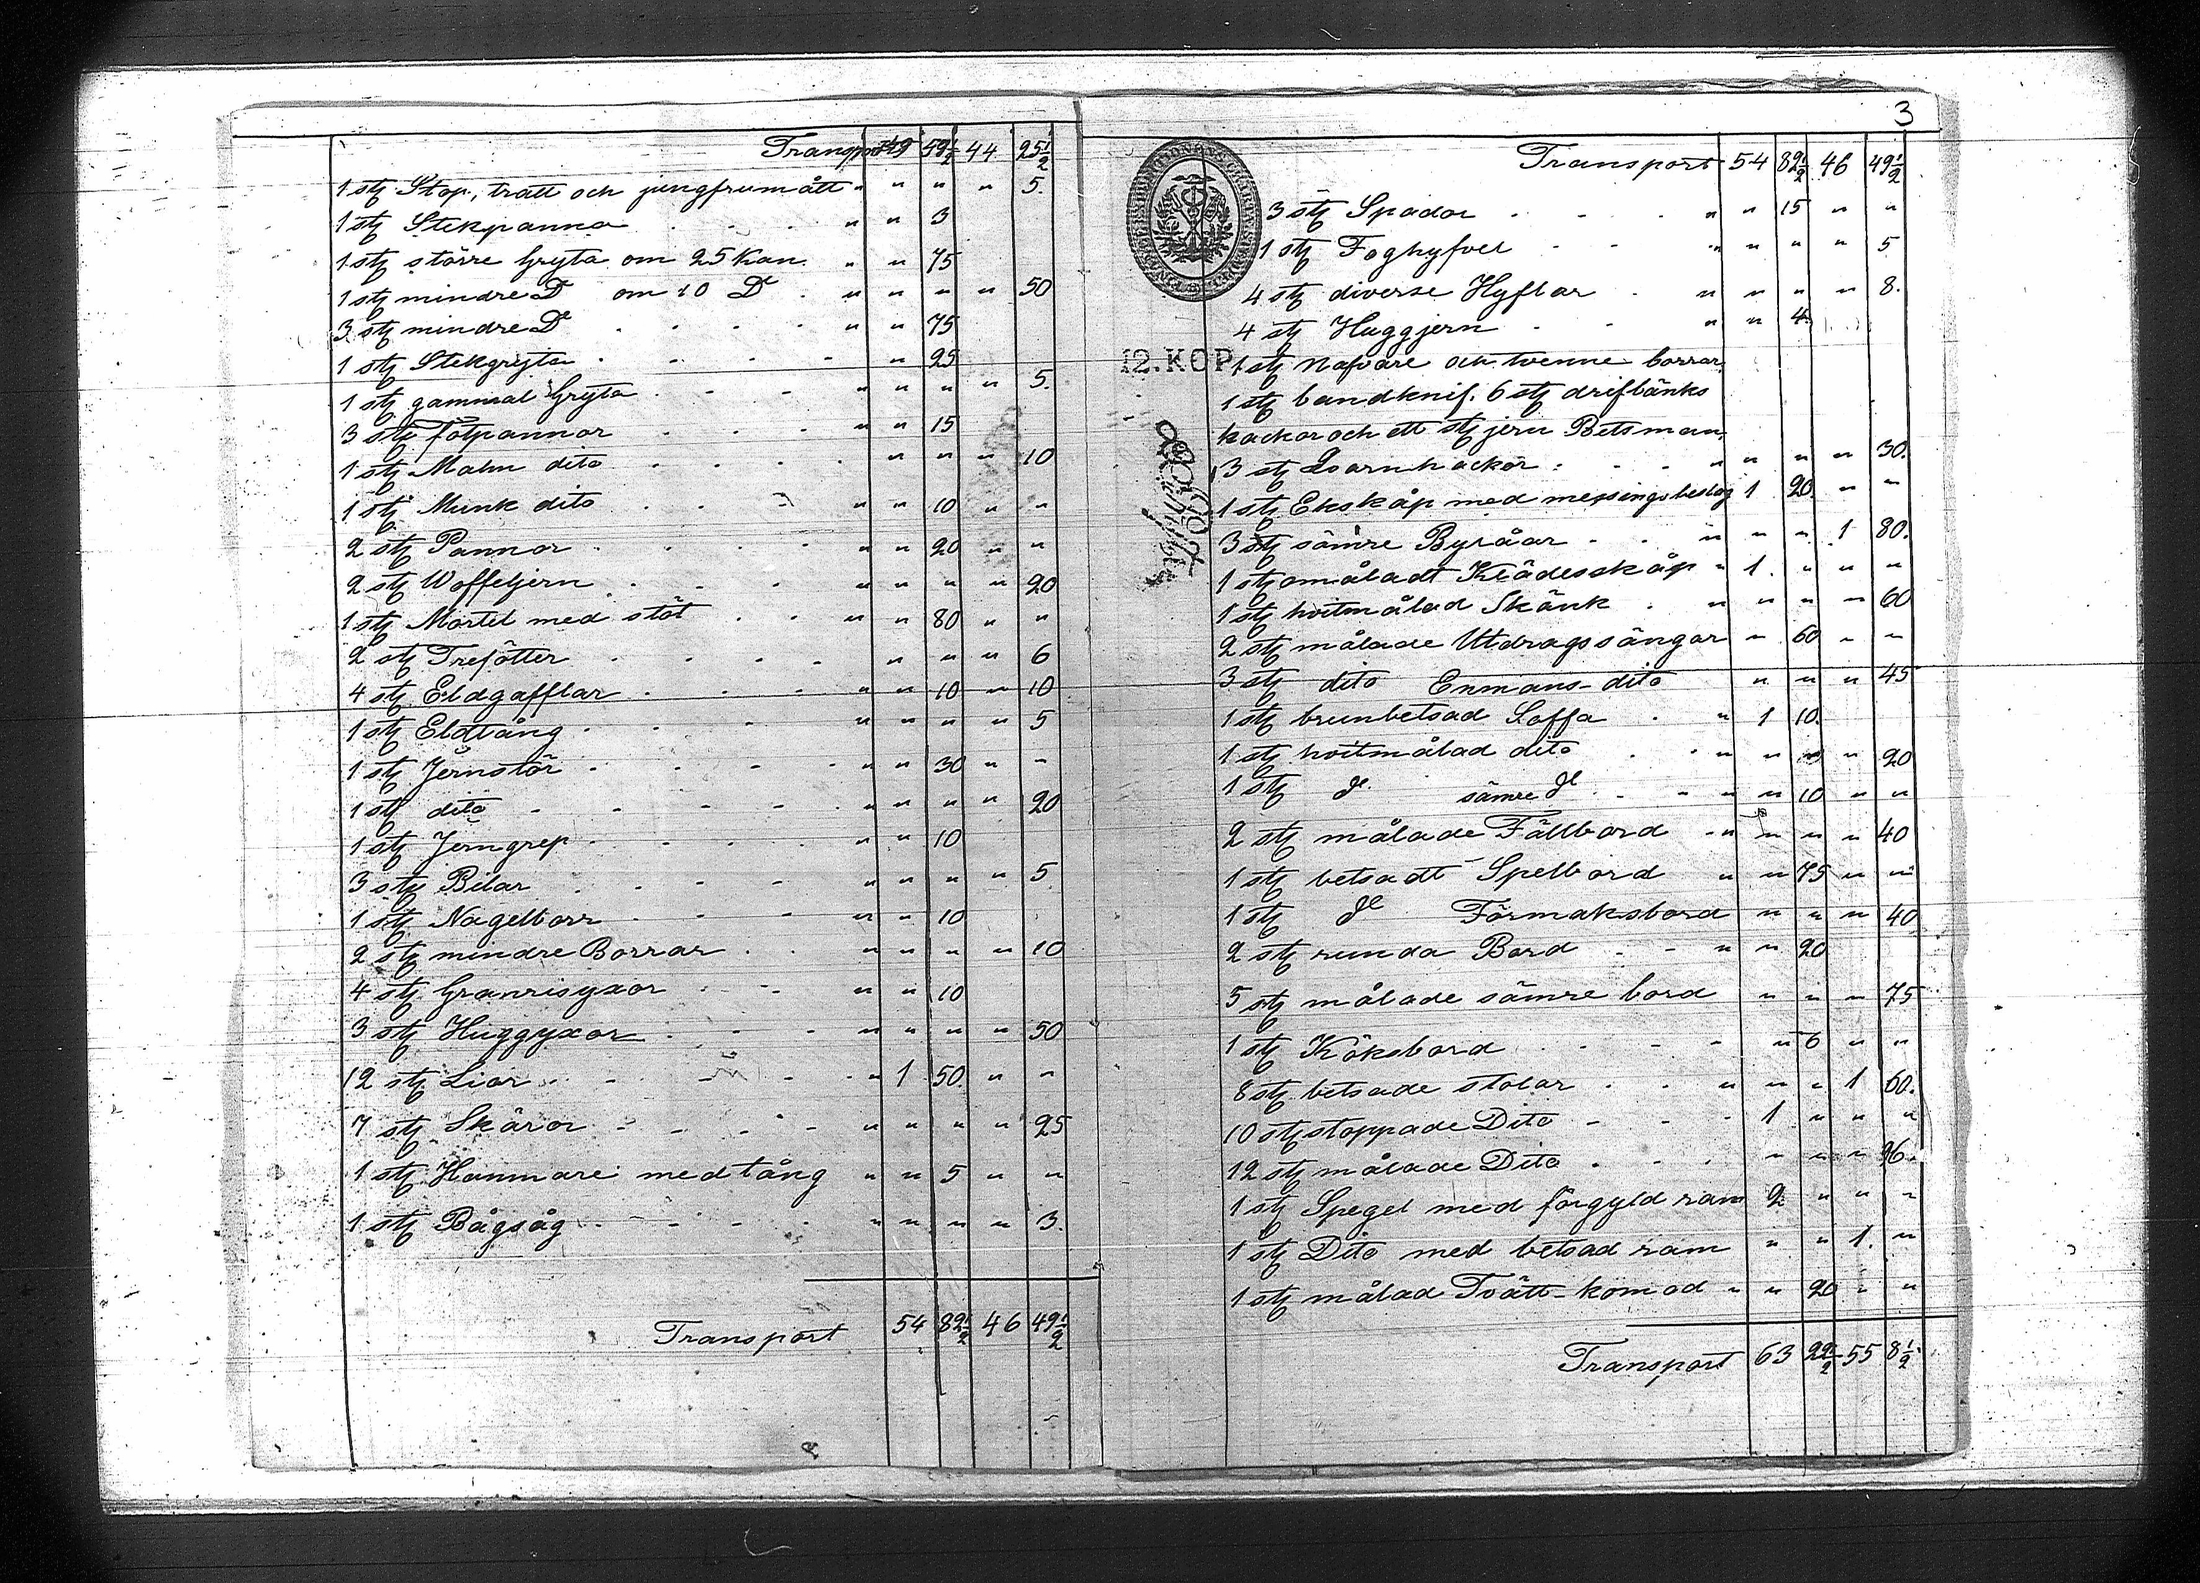 Transport 49 59½ 44 25½
1 stg Stop, tratt och jungfrumått " " " " 5.
1 stg Stekpanna " " 3
1 stg större Gryta om 25 Kan. " " 75
1 stg mindre D° om 10 D° " " " " 50
3 stg mindre D° " " 75
1 stg Stekgryta " 25
1 stg gammal Gryta " " " " 5.
3 stg fotpannor " " 15
1 stg Malm dito " " " " 10
1 stg Munk dito " " 10 " "
2 stg Pannor " " 20 " "
2 stg Woffeljern " " " " 20
1 stg Mortel med stöt " " 80 " "
2 stg Trefötter " " " 6
4 stg Eldgafflar " " 10 " 10
1 stg Eldtång " " " " 5
1 stg Jernstör " " 30 " "
1 stg dito " " " " 20
1 stg Jerngrep " " 10
3 stg Bilar " " " " 5
1 stg Nagelborr " " 10
2 stg mindre Borrar " " " " 10
4 stg Granrisyxor " " 10
3 stg Huggyxor " " " " 50
12 stg Liar " 1 50 " "
7 stg Skäror " " " " 25
1 stg Hammare med tång " " 5 " "
1 stg Bågsåg " " " " 3.
Transport 54 82½ 46 49½
3
Transport 54 82½ 46 49½
3 stg Spador " " 15 " "
1 stg Foghyfvel " " " " 5
4 stg diverse Hyflar " " " " 8.
4 stg Huggjern " " 4
12. KOP
1 stg Nafvare och tvenne borrar,
1 stg bandknif. 6 stg drefbänks
hackor och ett stg jern Betsman,
3 stg Qvarnhackor " " " " 30.
1 stg Ekskåp med messingsbeslag 1 20 " "
3 stg sämre Byråar " " " 1 80.
1 stg omåladt Klädesskåp " 1. " " "
1 stg hvitmålad Skänk " " " " 60
2 stg målade Utdragssängar " 60 " "
3 stg dito Enmans-dito " " " 45
1 stg brunbetsad Soffa " 1 10.
1 stg hvitmålad dito " " " " 20
1 stg d° sämre d° " " 10 " "
2 stg målade Fällbord " " " " 40
1 stg betsadt Spelbord " " 75 " "
1 stg d° Förmaksbord " " " 40
2 stg runda Bord " " 20
5 stg målade sämre bord " " " 75
1 stg Köksbord " 6 " "
8 stg betsade stolar " " " 1 60.
10 stg stoppade Dito 1 " " "
12 stg målade Dito " " " 96.
1 stg Spegel med förgyld ram 2 " " "
1 stg Dito med betsad ram " " 1. "
1 stg målad Tvätt-komod " " 20 " "
Transport 63 22½ 55 8½